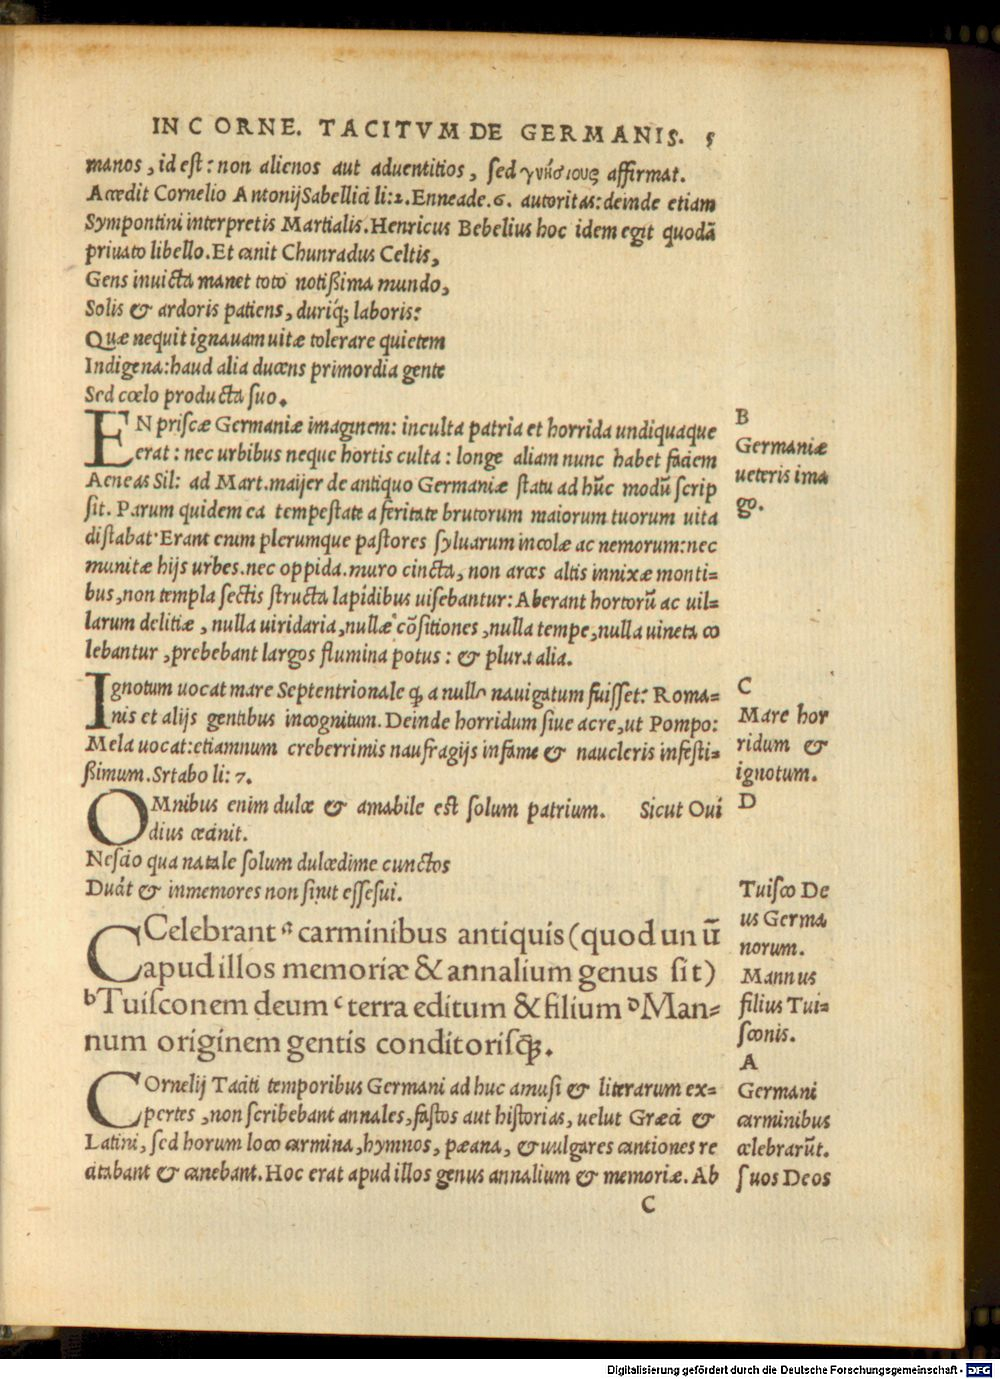 IN CORNE. TACITVM DE GERMANIS. 5
manos, id est: non alienos aut aduentitios, sed γνήσιους affirmat.
Accedit Cornelio Antonij Sabellici li: 2. Enneade. 6. autoritas: deinde etiam
Sympontini interpretis Martialis. Henricus Bebelius hoc idem egit quodã
priuato libello. Et canit Chunradus Celtis,
Gens inuicta manet toto notißima mundo,
Solis & ardoris patiens, duriq́; laboris:
Quæ nequit ignauam uitæ tolerare quietem
Indigena: haud alia ducens primordia gente
Sed cœlo producta suo.
EN priscæ Germaniæ imaginem: inculta patria et horrida undiquaque
erat: nec urbibus neque hortis culta: longe aliam nunc habet faciem
Aeneas Sil: ad Mart. maijer de antiquo Germaniæ statu ad hũc modũ scrip
sit. Parum quidem ea tempestate a feritate brutorum maiorum tuorum uita
distabat. Erant enim plerumque pastores syluarum incolæ ac nemorum: nec
munitæ hijs urbes. nec oppida. muro cincta, non arces altis innixæ monti=
bus, non templa sectis structa lapidibus uisebantur: Aberant hortorũ ac uil=
larum delitiæ, nulla uiridaria, nullæ cõsitiones, nulla tempe, nulla uineta co
lebantur, prebebant largos flumina potus: & plura alia.
Ignotum uocat mare Septentrionale ꝙ a nullo nauigatum fuisset: Roma=
nis et alijs gentibus incognitum. Deinde horridum siue acre, ut Pompo:
Mela uocat: etiamnum creberrimis naufragijs infame & naucleris infesti=
ßimum. Srtabo li: 7.
OMnibus enim dulce & amabile est solum patrium. Sicut Oui
dius cecinit.
Nescio qua natale solum dulcedime cunctos
Ducit & inmemores non sinit esse sui.
CCelebrant ᵃ carminibus antiquis (quod un ũ
apud illos memoriæ & annalium genus sit)
ᵇTuisconem deum ᶜ terra editum & filium ᴰMan=
num originem gentis conditorisq̃;.
COrnelij Taciti temporibus Germani ad huc amusi & literarum ex=
pertes, non scribebant annales, fastos aut historias, uelut Græci &
Latini, sed horum loco carmina, hymnos, pæana, & uulgares cantiones re
citabant & canebant. Hoc erat apud illos genus annalium & memoriæ. Ab
C
B
Germaniæ
ueteris ima
go.
C
Mare hor
ridum &
ignotum.
D
Tuisco De
us Germa
norum.
Mannus
filius Tui=
sconis.
A
Germani
carminibus
celebrarũt.
suos Deos
Digitalisierung gefördert durch die Deutsche Forschungsgemeinschaft - DFG